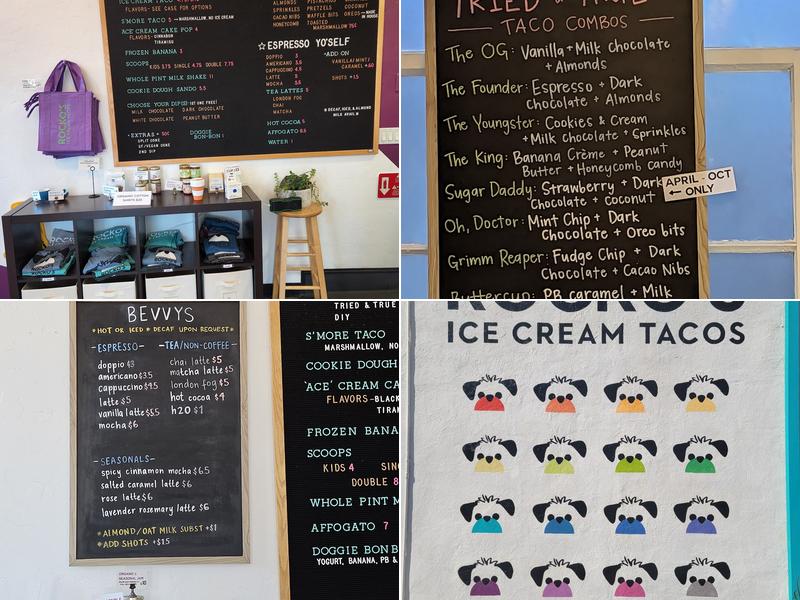 FLAVORS- SEE CASE FOR OPTIONS
S'MORE TACO 5 - MARSHMALLOW, NO ICE CREAM
ICE CREAM CAKE POP 4
FLAVORS- CINNABON
TIRAMISU
FROZEN BANANA 3
SCOOPS KIDS 3.75 SINGLE 4.75 DOUBLE 7.75
WHOLE PINT MILK SHAKE 11
COOKIE DOUGH SANDO 5.5
CHOOSE YOUR DIPS! 1ST ONE FREE!
MILK CHOCOLATE DARK CHOCOLATE
WHITE CHOCOLATE PEANUT BUTTER
*EXTRAS + 50¢
SPLIT CONE
GF/VEGAN CONE
2ND DIP
DOGGIE
BON-BON 1
ALMONDS
SPRINKLES PRETZELS
CACAO NIBS WAFFLE BITS OREOS
HONEYCOMB TOASTED
MARSHMALLOW 75¢
MADE IN HOUSE
☆ESPRESSO YO'SELF
DOPPIO 3
AMERICANO 3.5
CAPPUCCINO 4.5
LATTE 5
MOCHA 5.5
*ADD ON
VANILLA/MINT/
CARAMEL +.50
SHOTS +1.5
TEA LATTES 5
LONDON FOG
CHAI
MATCHA
HOT COCOA 5
AFFOGATO 6.5
WATER 1
* DECAF, ICED, & ALMOND
MILK AVAIL.
ROCKO'S
TRIED & TRUE
TACO COMBOS
The OG: Vanilla + Milk chocolate
+ Almonds
The Founder: Espresso + Dark
chocolate + Almonds
The Youngster: Cookies & Cream
+ Milk chocolate + Sprinkles
The King: Banana Crème + Peanut
Butter + Honeycomb candy
Sugar Daddy: Strawberry + Dark
Chocolate + coconut
APRIL - OCT
← ONLY
Oh, Doctor: Mint Chip + Dark
Chocolate + Oreo bits
Grimm Reaper: Fudge Chip + Dark
Chocolate + Cacao Nibs
Buttercup: PB caramel + Milk
BEVVYS
*HOT OR ICED * DECAF UPON REQUEST*
-ESPRESSO-
doppio $3
americano $3.5
cappuccino $4.5
latte $5
vanilla latte $5.5
mocha $6
-TEA/NON-COFFEE-
chai latte $5
matcha latte $5
london fog $5
hot cocoa $4
h2o $1
-SEASONALS-
spicy cinnamon mocha $6.5
salted caramel latte $6
rose latte $6
lavender rosemary latte $6
*ALMOND/OAT MILK SUBST +$1
*ADD SHOTS +$1.5
ORGANIC
SEASONAL JAM
TRIED & TRUE
DIY
S'MORE TACO
MARSHMALLOW, NO
COOKIE DOUGH
'ACE' CREAM CA
FLAVORS-BLACK
TIRA
FROZEN BANA
SCOOPS
KIDS 4 SIN
DOUBLE 8
WHOLE PINT M
AFFOGATO 7
DOGGIE BON B
YOGURT, BANANA, PB &
ROCKO'S
ICE CREAM TACOS